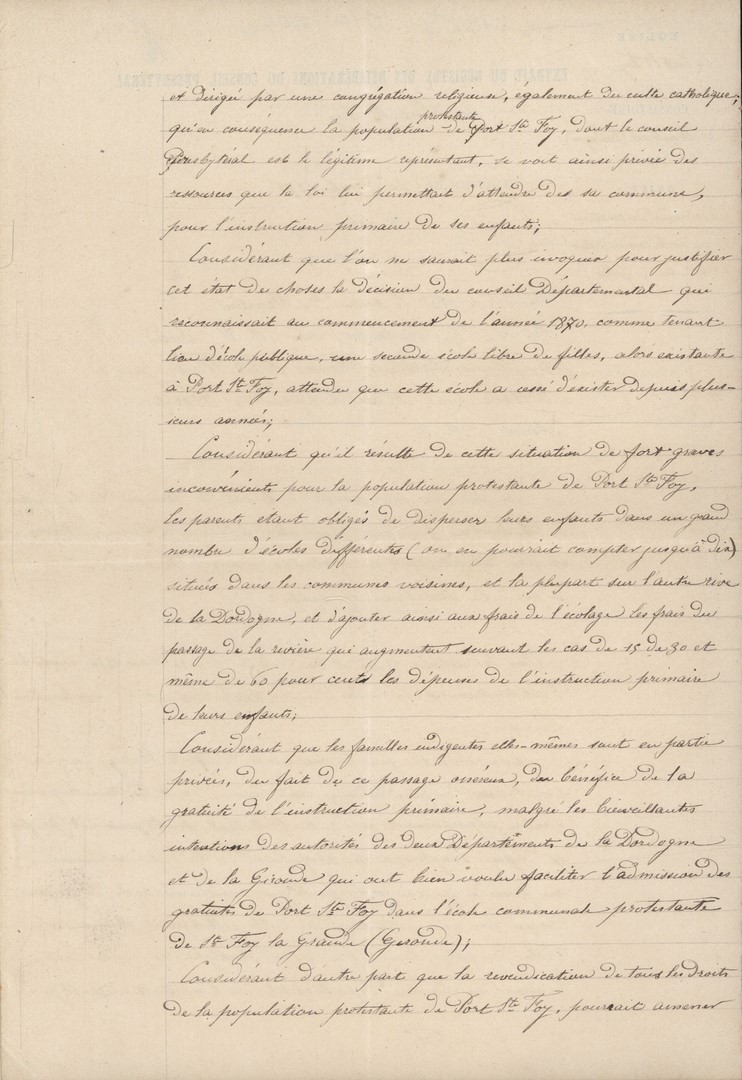 et dirigée par une congrégation religieuse, également du culte catholique;
qu'en conséquence la population protestante de Port Ste Foy, dont le conseil
Presbytéral est le légitime représentant, se voit ainsi privée des
ressources que la loi lui permettait d'attendre de sa commune,
pour l'instruction primaire de ses enfants;
Considérant que l'on ne saurait plus invoquer pour justifier
cet état de choses la décision du conseil Départemental qui
reconnaissait au commencement de l'année 1870. comme tenant
lieu d'école publique, une seconde école libre de filles, alors existante
à Port Ste Foy, attendu que cette école a cessé d'exister depuis plus-
ieurs années;
Considérant qu'il résulte de cette situation de fort graves
inconvénients pour la population protestante de Port Ste Foy,
les parents etant obligés de disperser leurs enfants dans un grand
nombre d'écoles différentes (on en pourrait compter jusqu'à dix)
situés dans les communes voisines, et la plupart sur l'autre rive
de la Dordogne, et d'ajouter ainsi aux frais de l'écolage les frais du
passage de la rivière qui augmentent suivant les cas de 15 de 30 et
même de 60 pour cents les dépenses de l'instruction primaire
de leurs enfants;
Considérant que les familles indigentes elles-mêmes sont en partie
privées, du fait de ce passage onéreux, du bénéfice de la
gratuité de l'instruction primaire, malgré les bienveillantes
intentions des autorités des deux Départements de la Dordogne
et de la Gironde qui ont bien voulu faciliter l'admission des
gratuités de Port Ste Foy dans l'école communale protestante
de Ste Foy la Grande (Gironde);
Considérant d'autre part que la revendication de tous les droits
de la population protestante de Port Ste Foy, pourrait amener